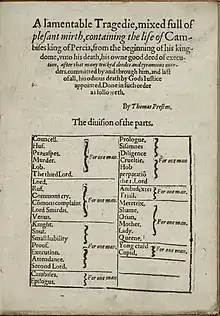 A lamentable Tragedie, mixed full of
plesant mirth, containing the life of Cam-
bises king of Percia, from the beginning of his king-
dome, vnto his death, his owne good deed of execu-
tion, after that many wicked deedes and tyrannous mur-
ders, committed by and through him, and last
of all, his odious death by Gods Iustice
appointed. Done in such order
as followeth.
By Thomas Preston.
The diuision of the parts.
Councell.
Huf.
Praxaspes.
Murder.
Lob.
The third Lord.
For one man.
Lord.
Ruf.
Commons cry,
Commos complaint
Lord Smirdis,
Venus.
For one man.
Knight.
Snuf.
Small hability
Proof.
Execution.
Attendance.
Second Lord.
For one man.
Cambises,
Epilogus.
For one man.
Prologue,
Sisamnes
Diligence
Crueltie,
Hob
preparatiō
the i. Lord
For one man
Ambidexter
Triall.
For one man.
Meretrix,
Shame,
Otian,
Mother,
Lady,
Queene.
For one man.
Yong child
Cupid,
For one man.